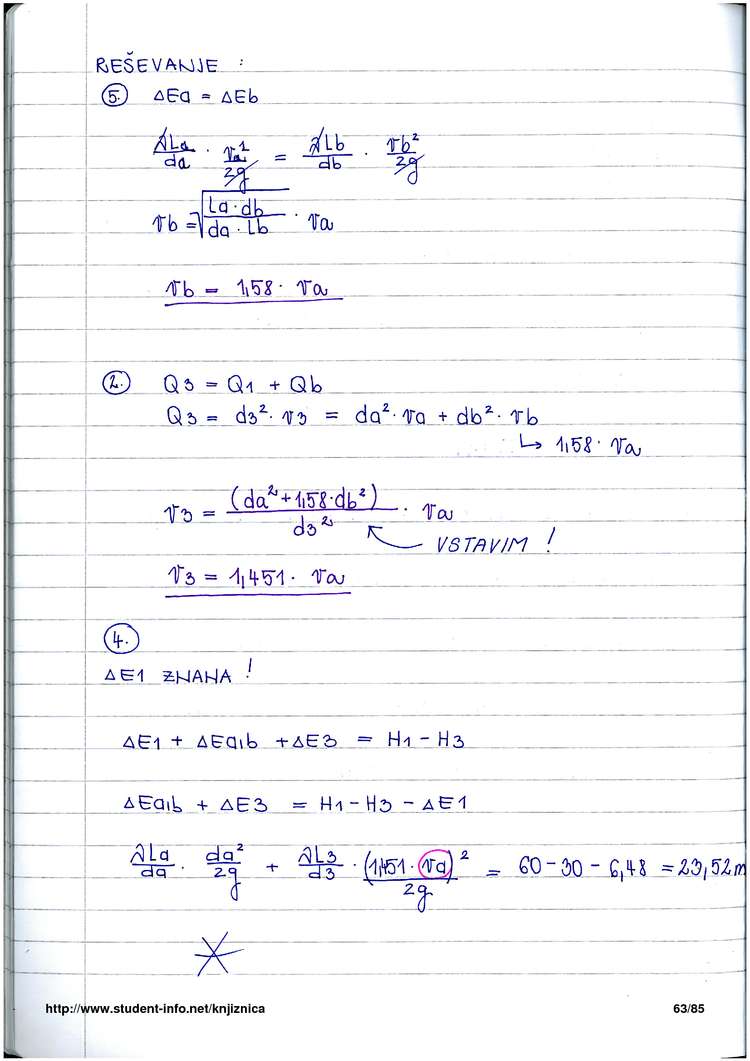 REŠEVANJE :
5. ΔEa = ΔEb
λLa/da · va²/2g = λLb/db · vb²/2g
vb = √(La·db / da·Lb) · va
vb = 1,58 · va
2. Q3 = Q1 + Qb
Q3 = d3² · v3 = da² · va + db² · vb
↳ 1,58 · va
v3 = (da² + 1,58·db²)/d3² · va
VSTAVIM !
v3 = 1,451 · va
4.
ΔE1 ZNANA !
ΔE1 + ΔEa,b + ΔE3 = H1 - H3
ΔEa,b + ΔE3 = H1 - H3 - ΔE1
λLa/da · da²/2g + λL3/d3 · (1,451 · va)²/2g = 60 - 30 - 6,48 = 23,52 m
http://www.student-info.net/knjiznica 63/85